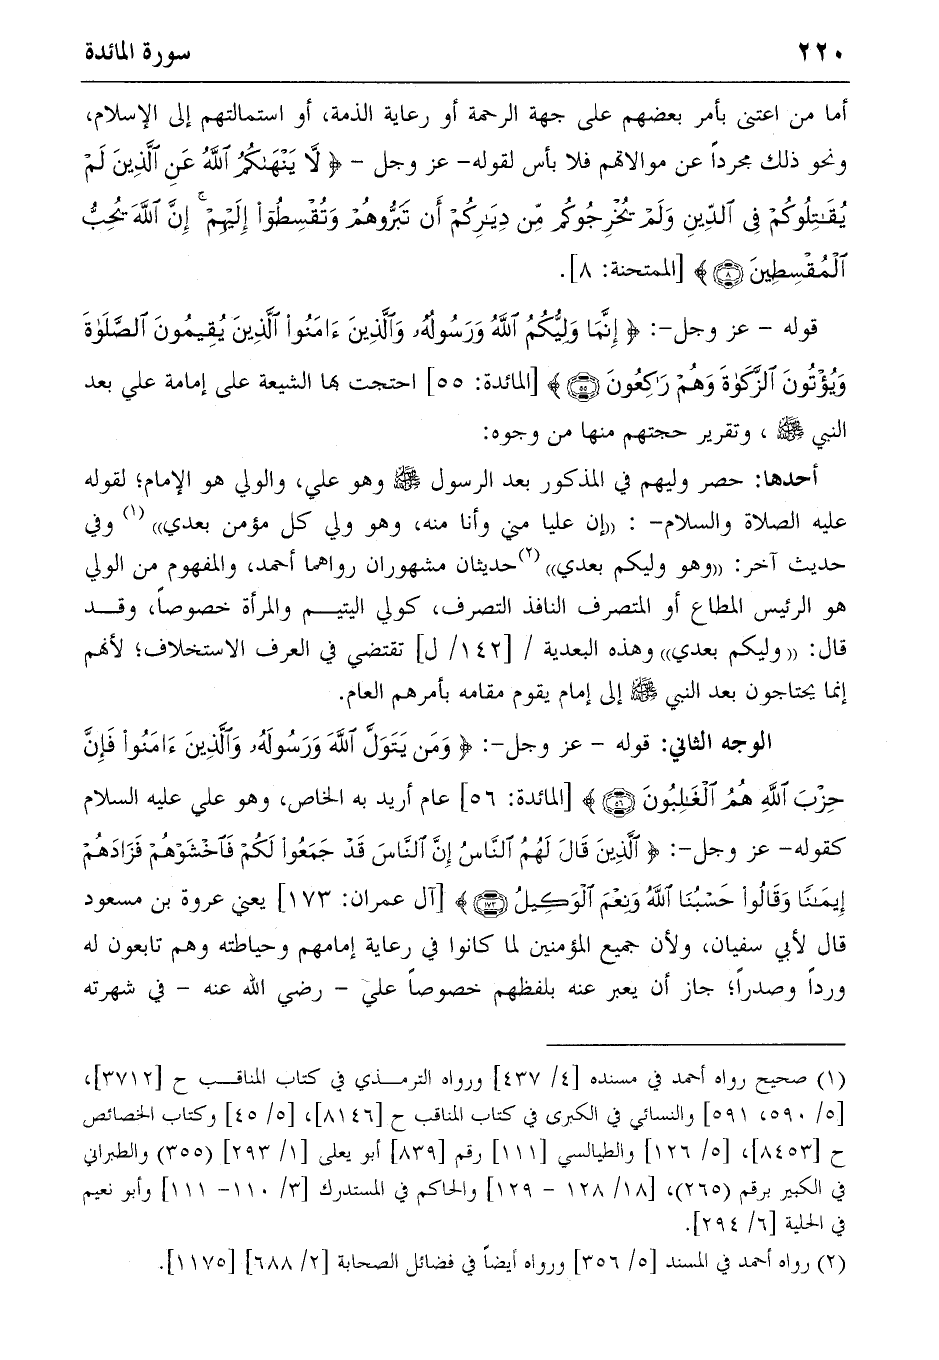 ٢٢٠ سورة المائدة
أما من اعتنى بأمر بعضهم على جهة الرحمة أو رعاية الذمة، أو استمالتهم إلى الإسلام،
ونحو ذلك مجرداً عن موالاتهم فلا بأس لقوله- عز وجل - ﴿ لَّا يَنْهَىٰكُمُ ٱللَّهُ عَنِ ٱلَّذِينَ لَمْ
يُقَٰتِلُوكُمْ فِي ٱلدِّينِ وَلَمْ يُخْرِجُوكُم مِّن دِيَٰرِكُمْ أَن تَبَرُّوهُمْ وَتُقْسِطُوٓا۟ إِلَيْهِمْ ۚ إِنَّ ٱللَّهَ يُحِبُّ
ٱلْمُقْسِطِينَ ٨ ﴾ [الممتحنة: ٨].
قوله - عز وجل-: ﴿ إِنَّمَا وَلِيُّكُمُ ٱللَّهُ وَرَسُولُهُۥ وَٱلَّذِينَ ءَامَنُوا۟ ٱلَّذِينَ يُقِيمُونَ ٱلصَّلَوٰةَ
وَيُؤْتُونَ ٱلزَّكَوٰةَ وَهُمْ رَٰكِعُونَ ٥٥ ﴾ [المائدة: ٥٥] احتجت بها الشيعة على إمامة علي بعد
النبي ﷺ ، وتقرير حجتهم منها من وجوه:
أحدها: حصر وليهم في المذكور بعد الرسول ﷺ وهو علي، والولي هو الإمام؛ لقوله
عليه الصلاة والسلام- : ((إن عليا مني وأنا منه، وهو ولي كل مؤمن بعدي))(١) وفي
حديث آخر: ((وهو وليكم بعدي))(٢)حديثان مشهوران رواهما أحمد، والمفهوم من الولي
هو الرئيس المطاع أو المتصرف النافذ التصرف، كولي اليتيــم والمرأة خصوصاً، وقــد
قال: (( وليكم بعدي)) وهذه البعدية / [١٤٢/ ل] تقتضي في العرف الاستخلاف؛ لأنهم
إنما يحتاجون بعد النبي ﷺ إلى إمام يقوم مقامه بأمرهم العام.
الوجه الثاني: قوله - عز وجل-: ﴿ وَمَن يَتَوَلَّ ٱللَّهَ وَرَسُولَهُۥ وَٱلَّذِينَ ءَامَنُوا۟ فَإِنَّ
حِزْبَ ٱللَّهِ هُمُ ٱلْغَٰلِبُونَ ٥٦ ﴾ [المائدة: ٥٦] عام أريد به الخاص، وهو علي عليه السلام
كقوله- عز وجل-: ﴿ ٱلَّذِينَ قَالَ لَهُمُ ٱلنَّاسُ إِنَّ ٱلنَّاسَ قَدْ جَمَعُوا۟ لَكُمْ فَٱخْشَوْهُمْ فَزَادَهُمْ
إِيمَٰنًا وَقَالُوا۟ حَسْبُنَا ٱللَّهُ وَنِعْمَ ٱلْوَكِيلُ ١٧٣ ﴾ [آل عمران: ١٧٣] يعني عروة بن مسعود
قال لأبي سفيان، ولأن جميع المؤمنين لما كانوا في رعاية إمامهم وحياطته وهم تابعون له
ورداً وصدراً؛ جاز أن يعبر عنه بلفظهم خصوصاً علي - رضي الله عنه - في شهرته
(١) صحيح رواه أحمد في مسنده [٤/ ٤٣٧] ورواه الترمـذي في كتاب المناقـب ح [٣٧١٢]،
[٥/ ٥٩٠، ٥٩١] والنسائي في الكبرى في كتاب المناقب ح [٨١٤٦]، [٥/ ٤٥] وكتاب الخصائص
ح [٨٤٥٣]، [٥/ ١٢٦] والطيالسي [١١١] رقم [٨٣٩] أبو يعلى [١/ ٢٩٣] (٣٥٥) والطبراني
في الكبير برقم (٢٦٥)، [١٨/ ١٢٨ - ١٢٩] والحاكم في المستدرك [٣/ ١١٠- ١١١] وأبو نعيم
في الحلية [٦/ ٢٩٤].
(٢) رواه أحمد في المسند [٥/ ٣٥٦] ورواه أيضاً في فضائل الصحابة [٢/ ٦٨٨] [١١٧٥].